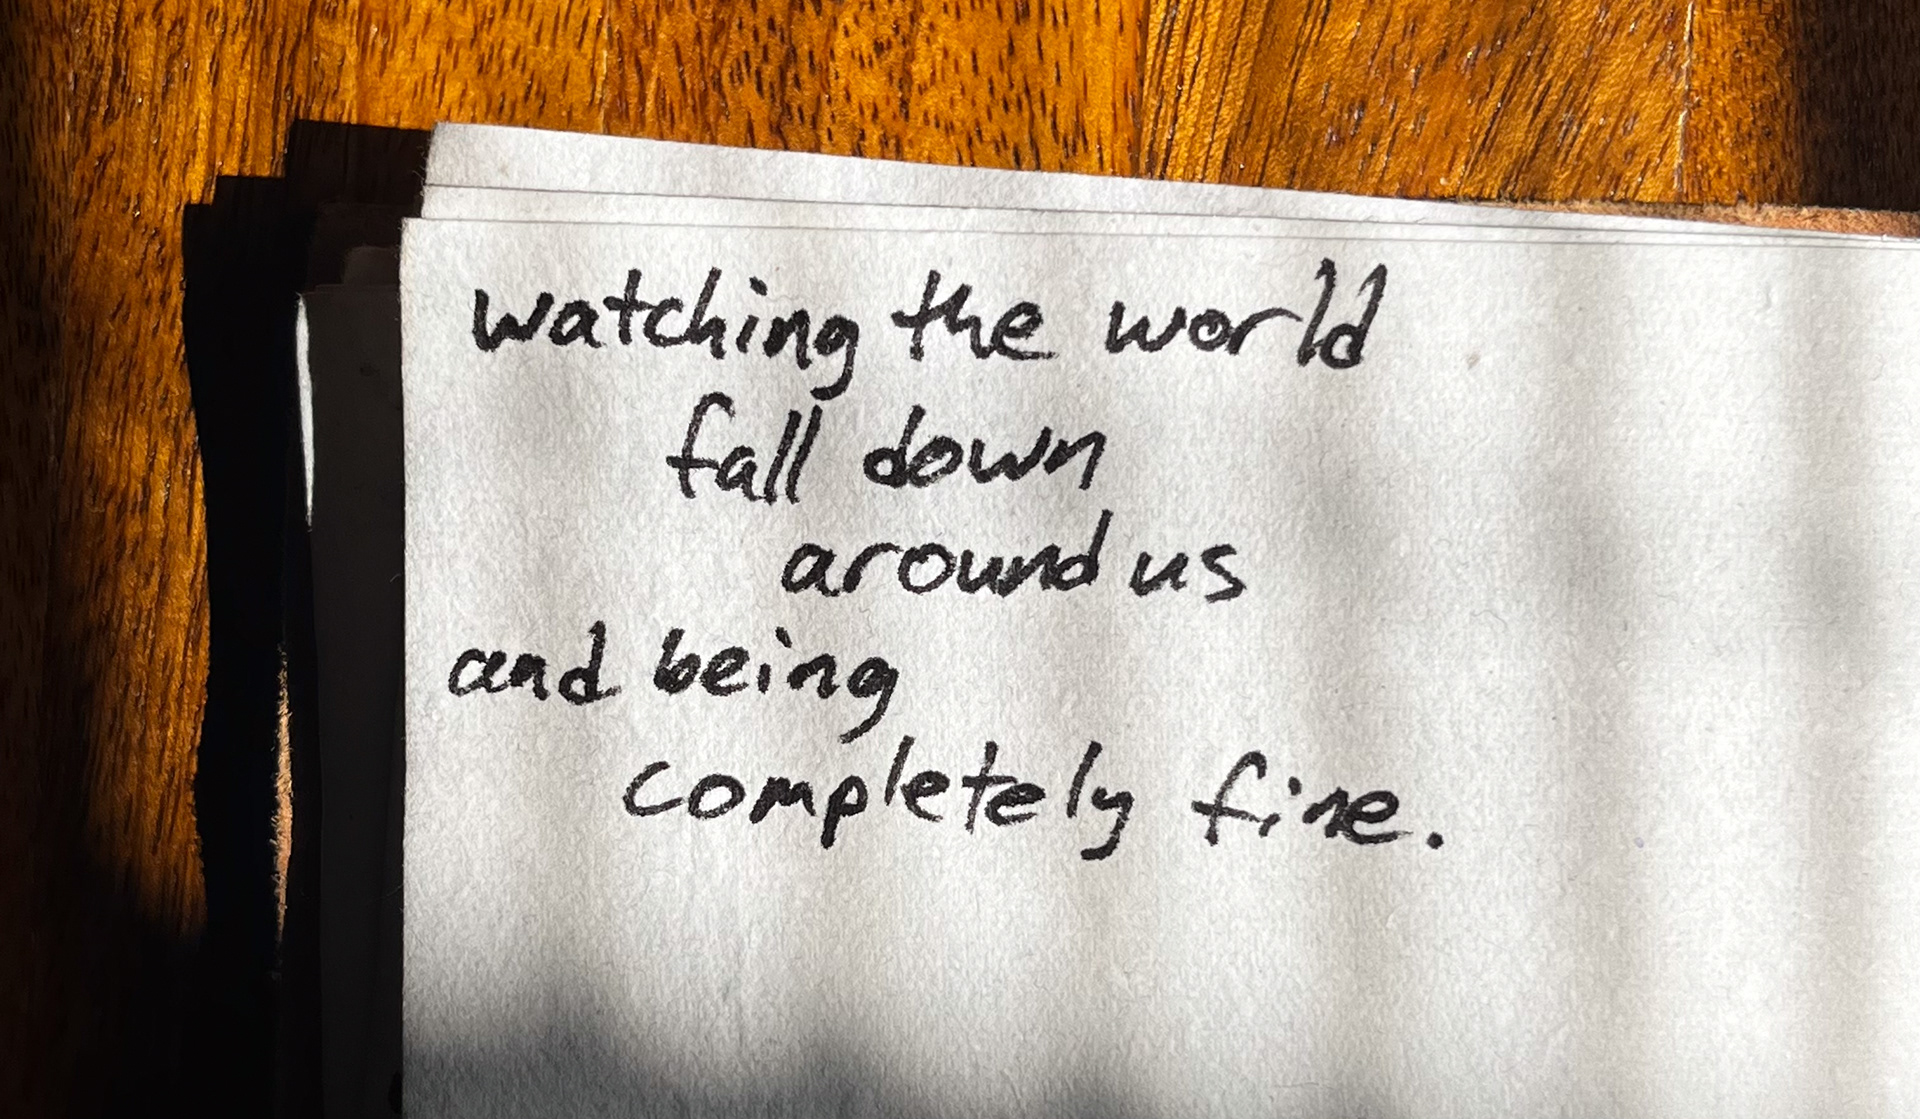 watching the world
fall down
around us
and being
completely fine.